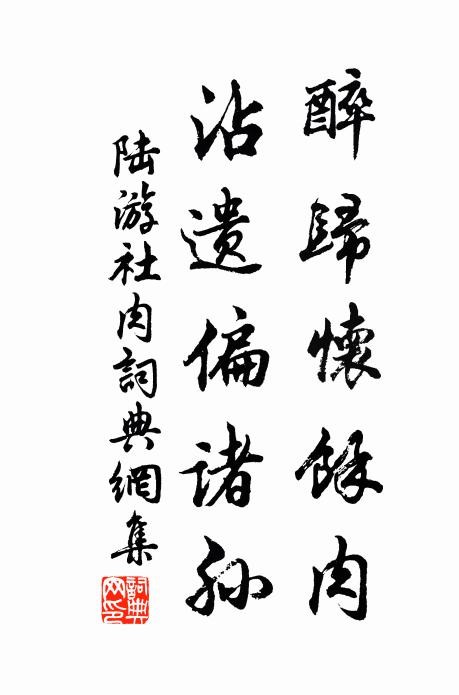 醉歸懷餘肉
沾遺偏諸孙
陆游社肉詞典網集
詞典网印